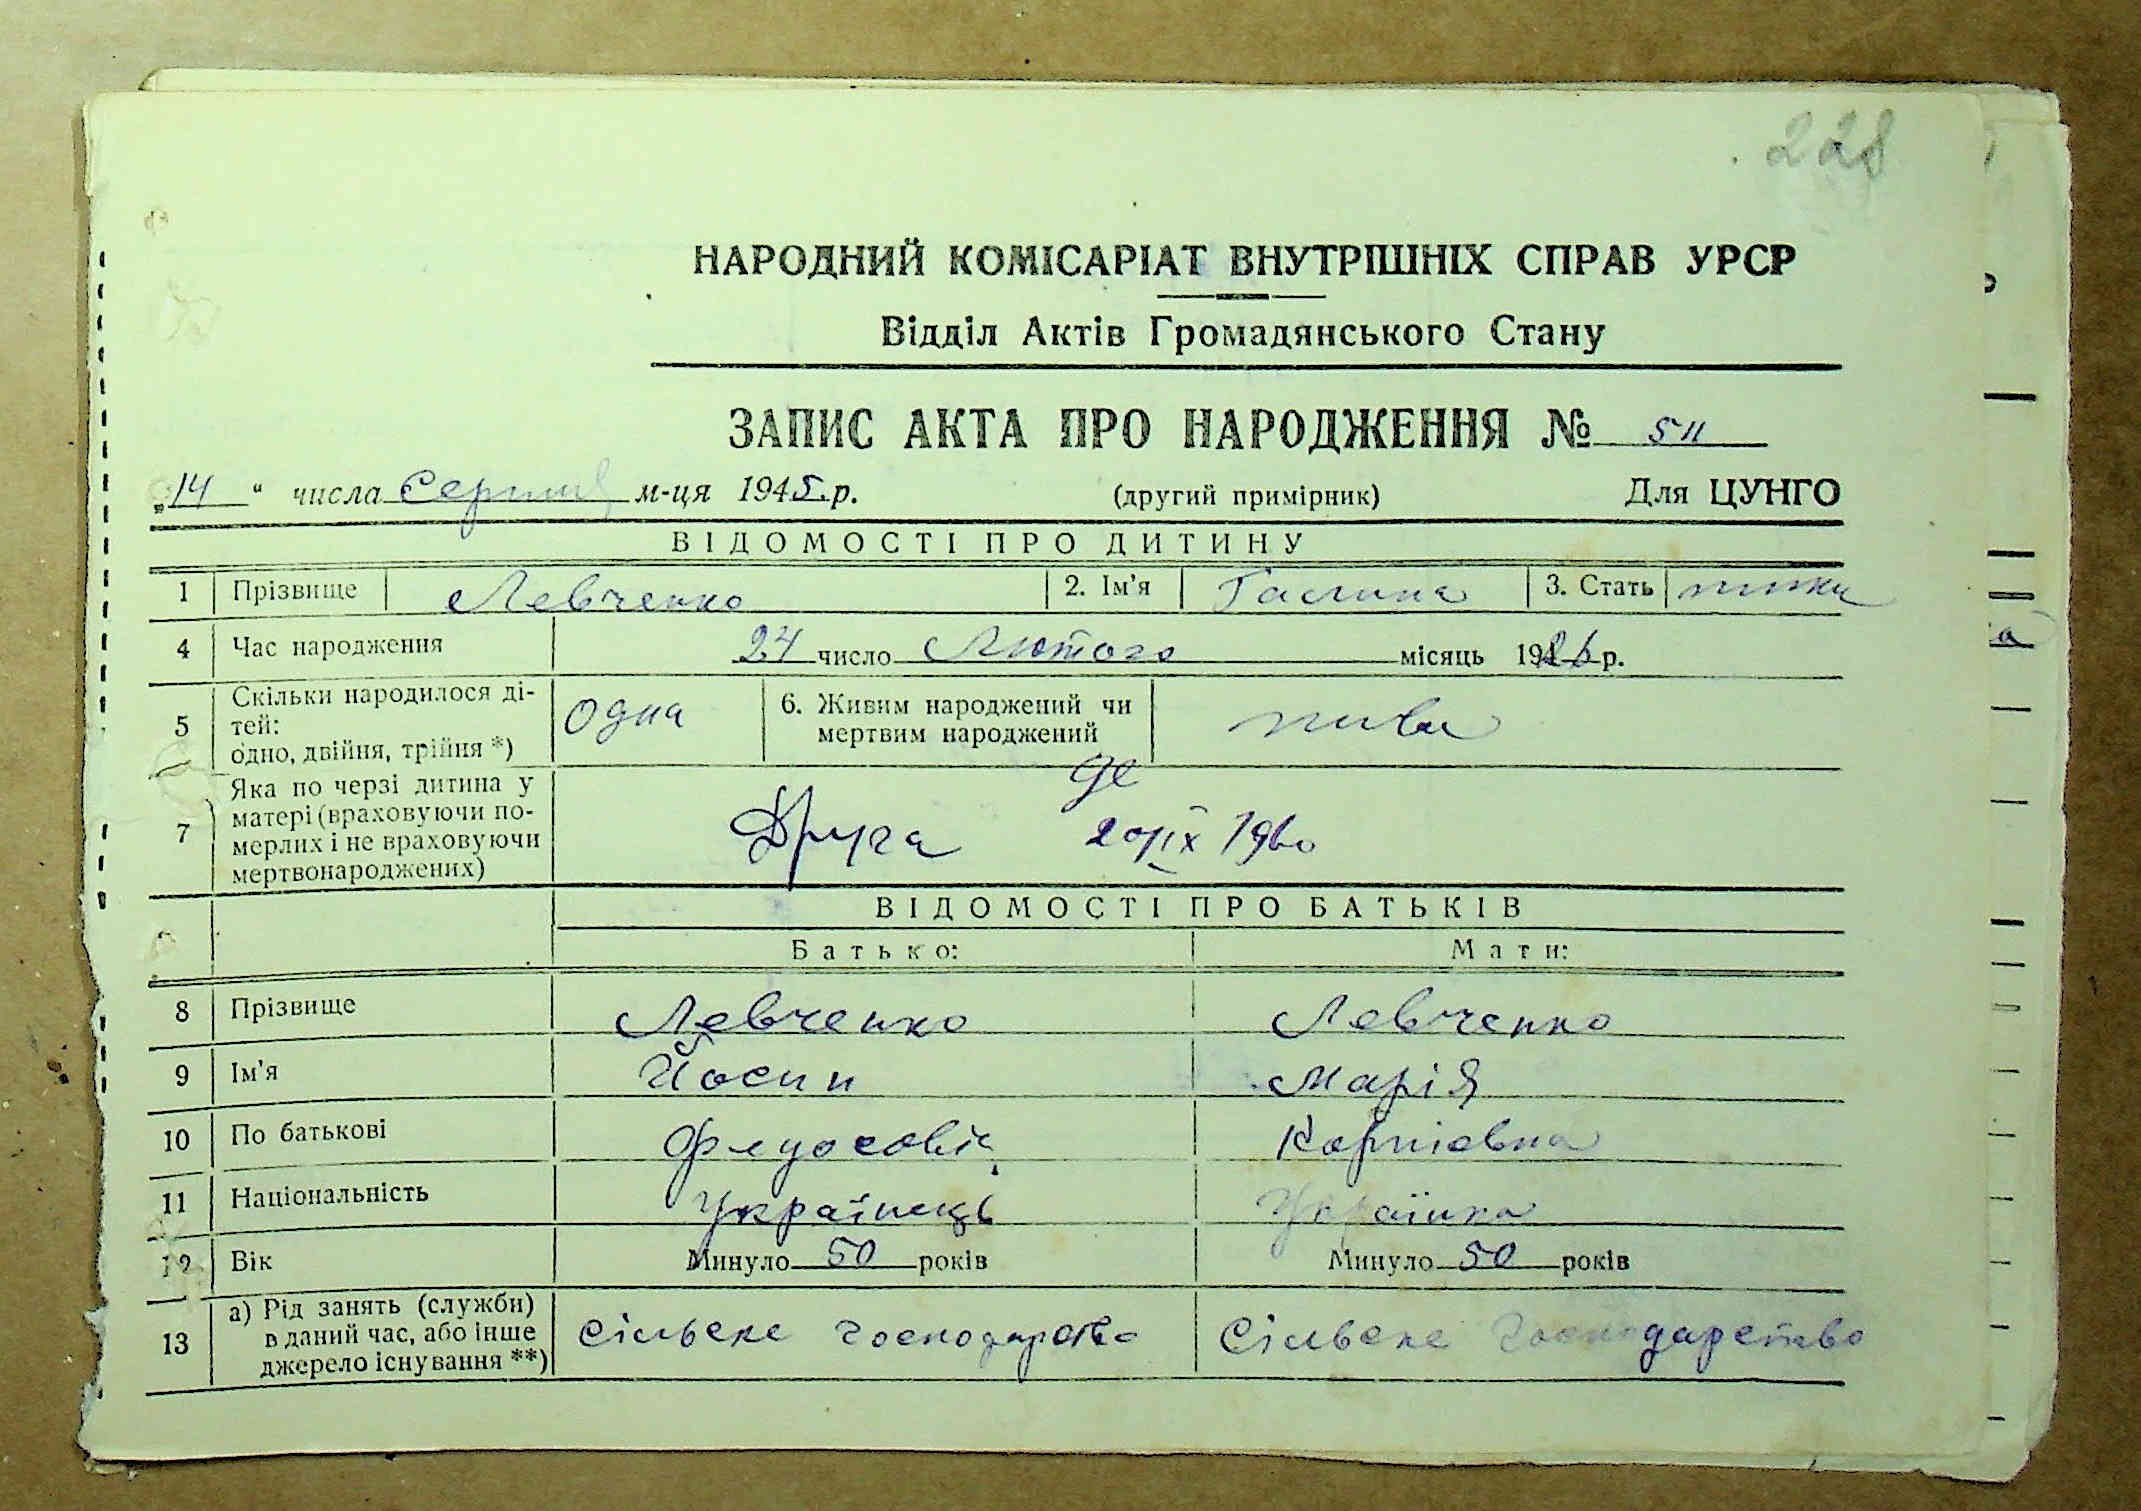 228
НАРОДНИЙ КОМІСАРІАТ ВНУТРІШНІХ СПРАВ УРСР
Відділ Актів Громадянського Стану
ЗАПИС АКТА ПРО НАРОДЖЕННЯ № 511
„14" числа Серпня м-ця 1945 р. (другий примірник) Для ЦУНГО
ВІДОМОСТІ ПРО ДИТИНУ
1 Прізвище Левченко 2. Ім'я Галина 3. Стать
4 Час народження 24 число Лютого місяць 1926 р.
5 Скільки народилося ді-
тей:
одно, двійня, трійня *) Одна 6. Живим народжений чи
мертвим народжений живи
7 Яка по черзі дитина у
матері (враховуючи по-
мерлих і не враховуючи
мертвонароджених) Друга 20/IX 1960
ВІДОМОСТІ ПРО БАТЬКІВ
Батько: Мати:
8 Прізвище Левченко Левченко
9 Ім'я Йосип Марія
10 По батькові Федосовіч Карпівна
11 Національність Українець Українка
12 Вік Минуло 50 років Минуло 50 років
13 а) Рід занять (служби)
в даний час, або інше
джерело існування **) Сільске господарство Сільске господарство